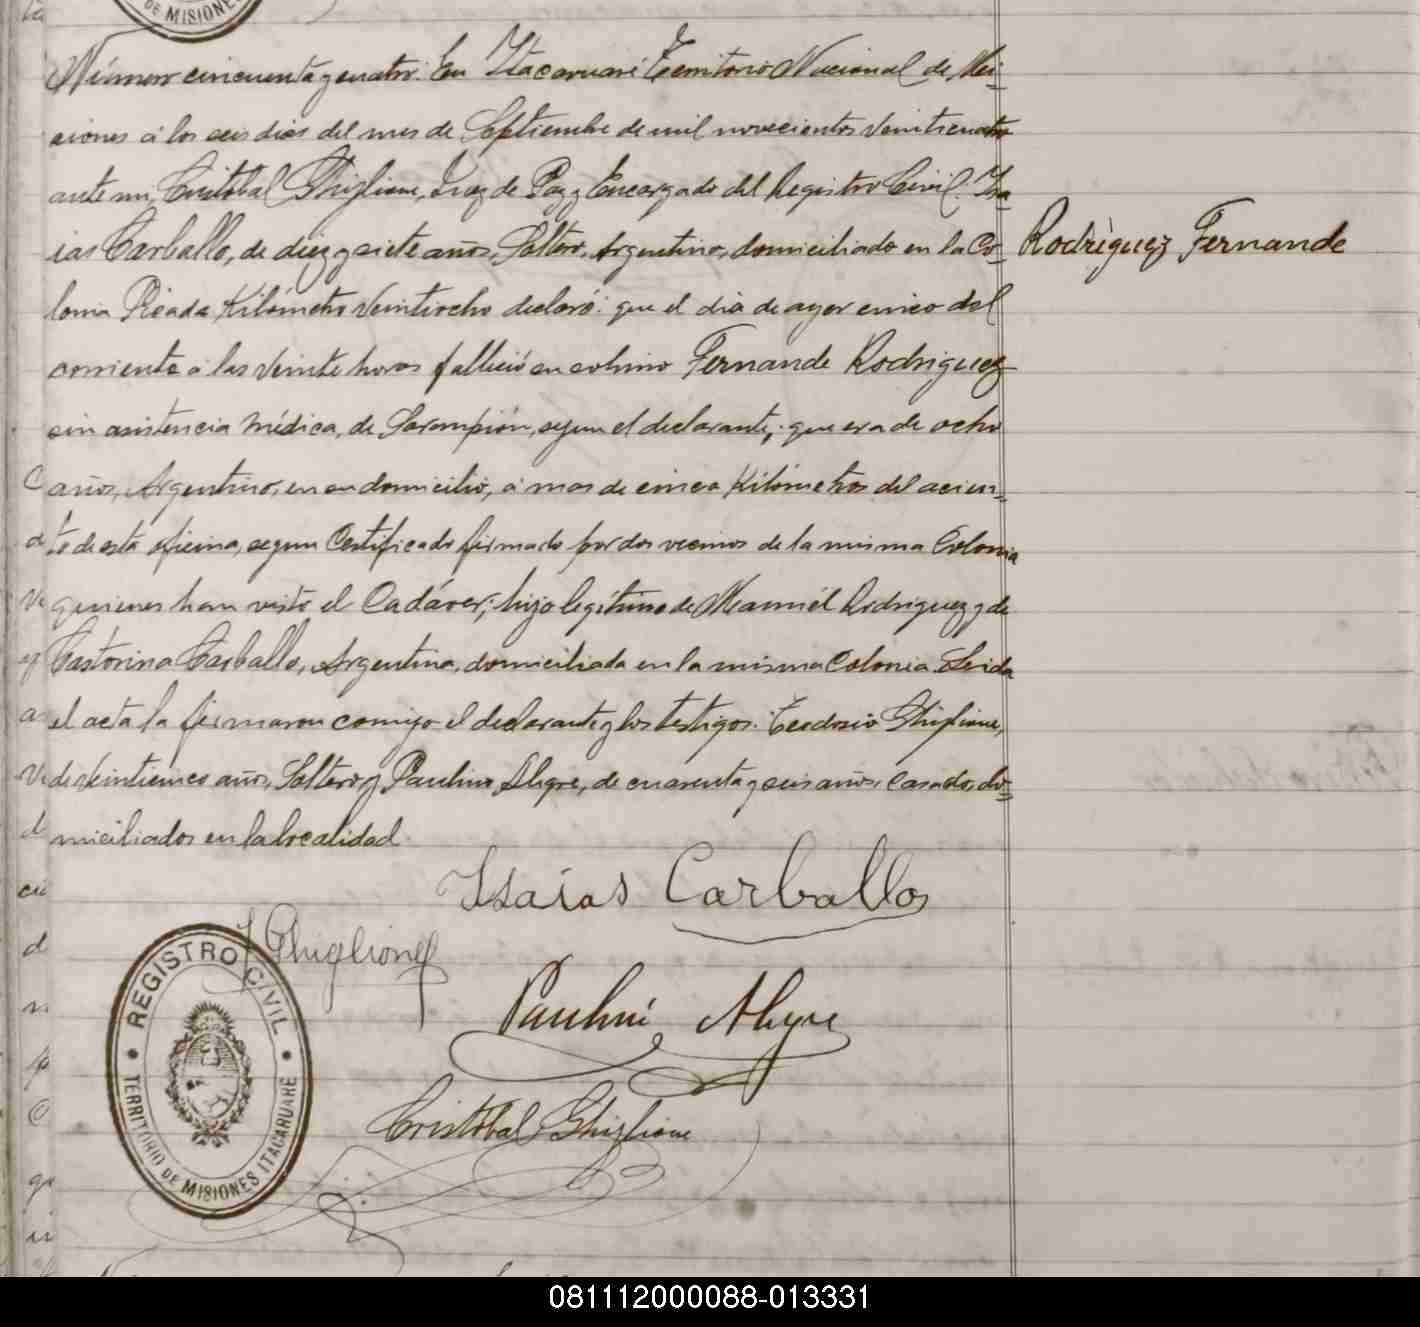 DE MISIONES
Número cincuenta y cuatro: En Itacaruaré Territorio Nacional de Mi-
siones á los seis dias del mes de Septiembre de mil novecientos veinticuatro
ante mi, Cristobal Ghiglione, Juez de Paz y Encargado del Registro Civil. Isa-
ias Carballo, de diez y siete años, Soltero, Argentino, domiciliado en la Co-
lonia Picada Kilómetro Veintiocho declaró: que el dia de ayer cinco del
corriente á las veinte horas falleció en Fernande Rodriguez
sin asistencia médica, de Sarampión, segun el declarante; que era de ocho
años, Argentino, en su domicilio, á mas de cinco Kilómetros del asien-
to de esta oficina, segun Certificado firmado por dos vecinos de la misma Colonia
quienes han visto el Cadáver; hijo legítimo de Manuél Rodriguez y de
Castorina Carballo, Argentina, domiciliada en la misma Colonia. Leida
el acta la firmaron conmigo el declarante y los testigos: Teodosio Ghiglione,
de veinticinco años, Soltero y Paulino Alegre, de cuarenta y seis años, Casado, do-
miciliados en la localidad.
Rodríguez Fernande
Isaías Carballo
T Ghiglione
Paulino Alegre
Cristobal Ghiglione
REGISTRO CIVIL
TERRITORIO DE MISIONES ITACARUARÉ
081112000088-013331